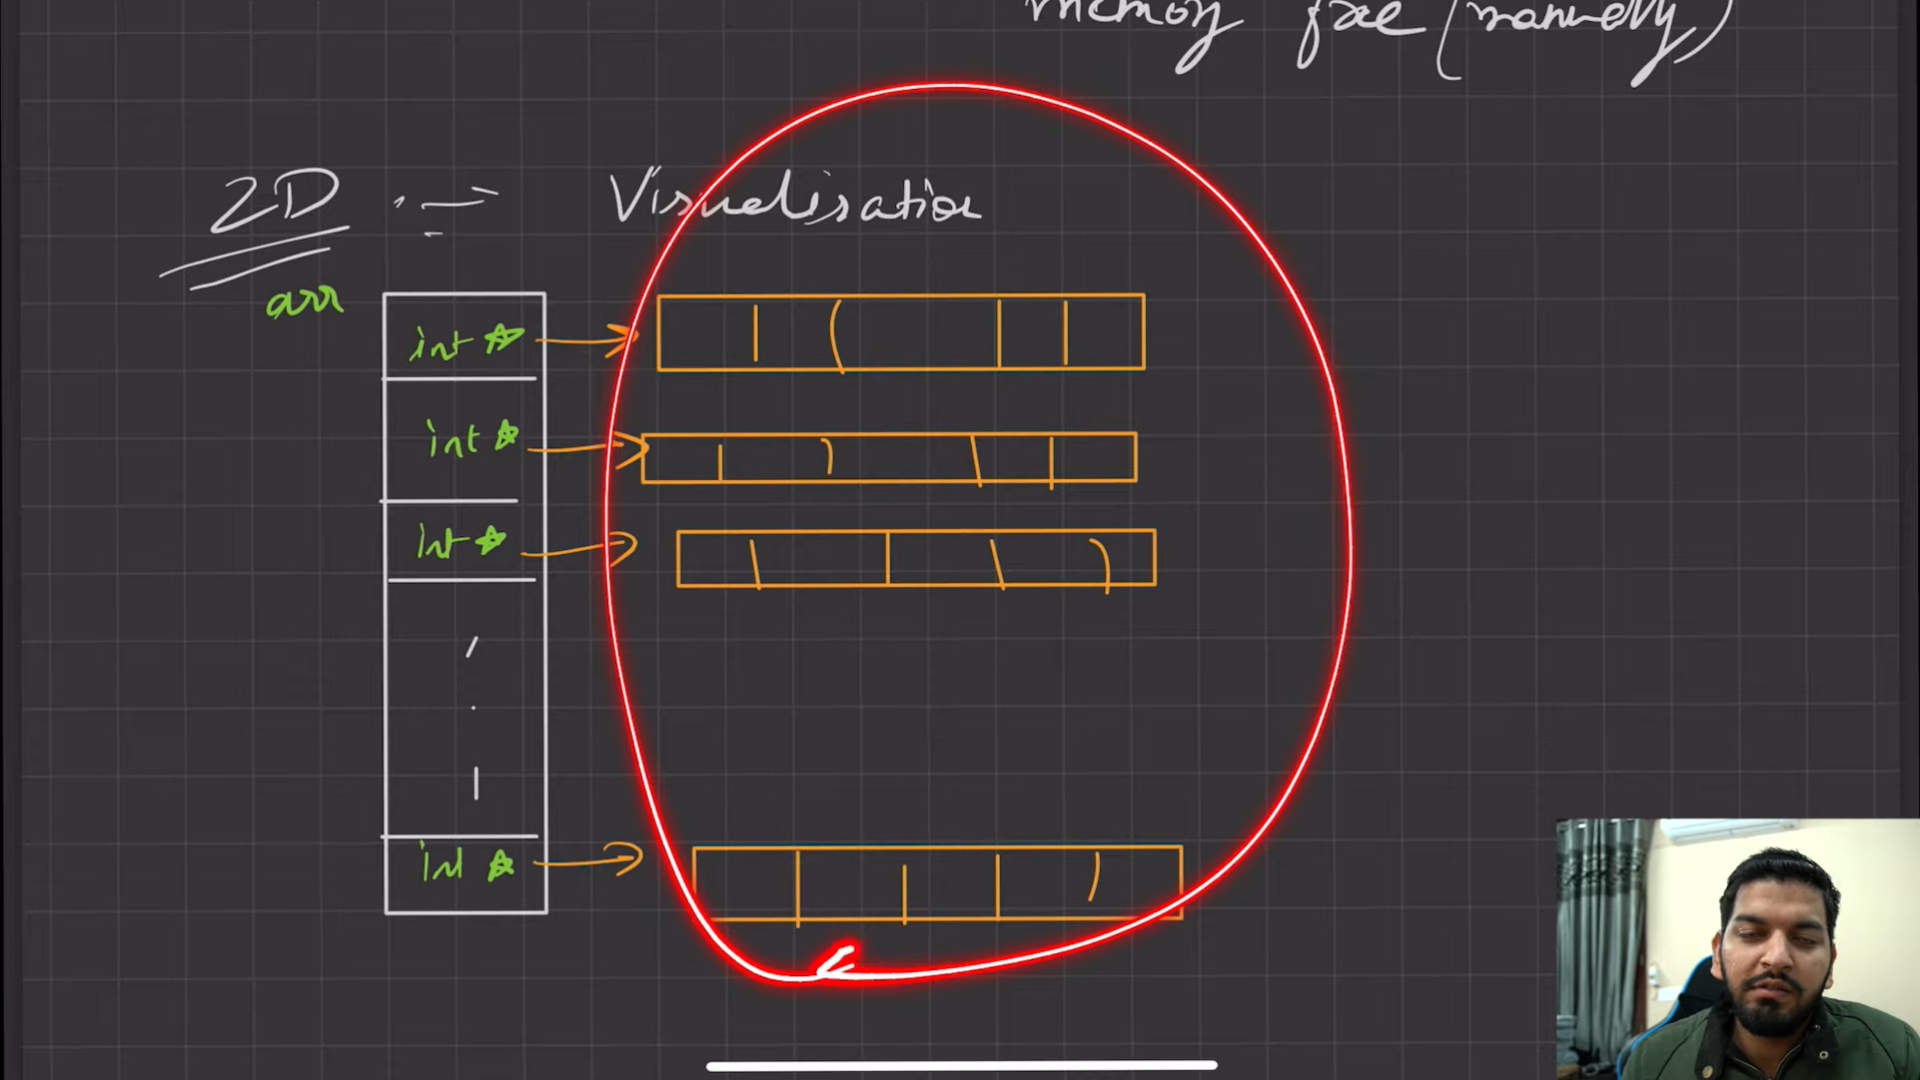 memory free (manually)
2D :- Visualisation
arr
int *
int *
int *
int *